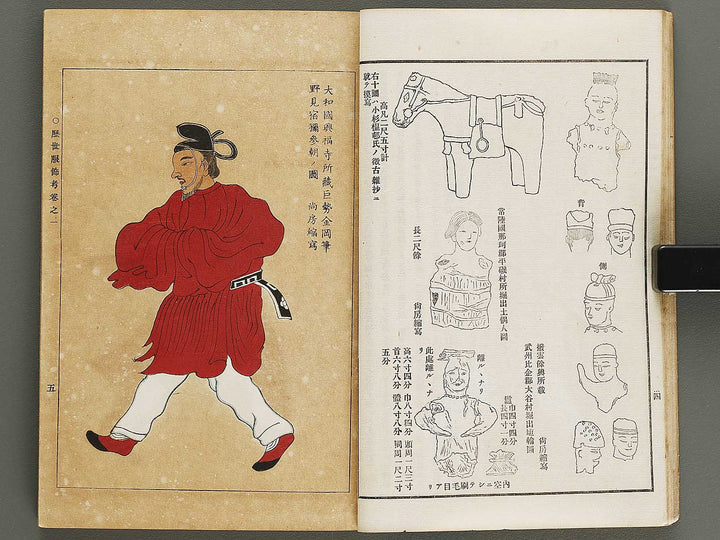 背
側
撥雲餘興所載
武州比企郡大谷村堀出埴輪圖
尚房縮寫
四
常陸國那珂郡平磯村所堀出土偶人圖
長二尺餘
尚房縮寫
離ルヽナリ
此處離ルヽナリ
巾四寸四分
長四寸一分
高六寸四分 巾八寸四分 頭周一尺三寸
首六寸八分 體八寸八分 同周一尺二寸
五分
內空ニシテ刷毛目アリ
高凡二尺五寸計
右十圖ハ小杉榲邨氏ノ徴古雜抄ニ
就テ摸寫
大和國興福寺所藏巨勢金岡筆
野見宿彌參朝ノ圖
尚房縮寫
○歷世服飾考卷之一
五